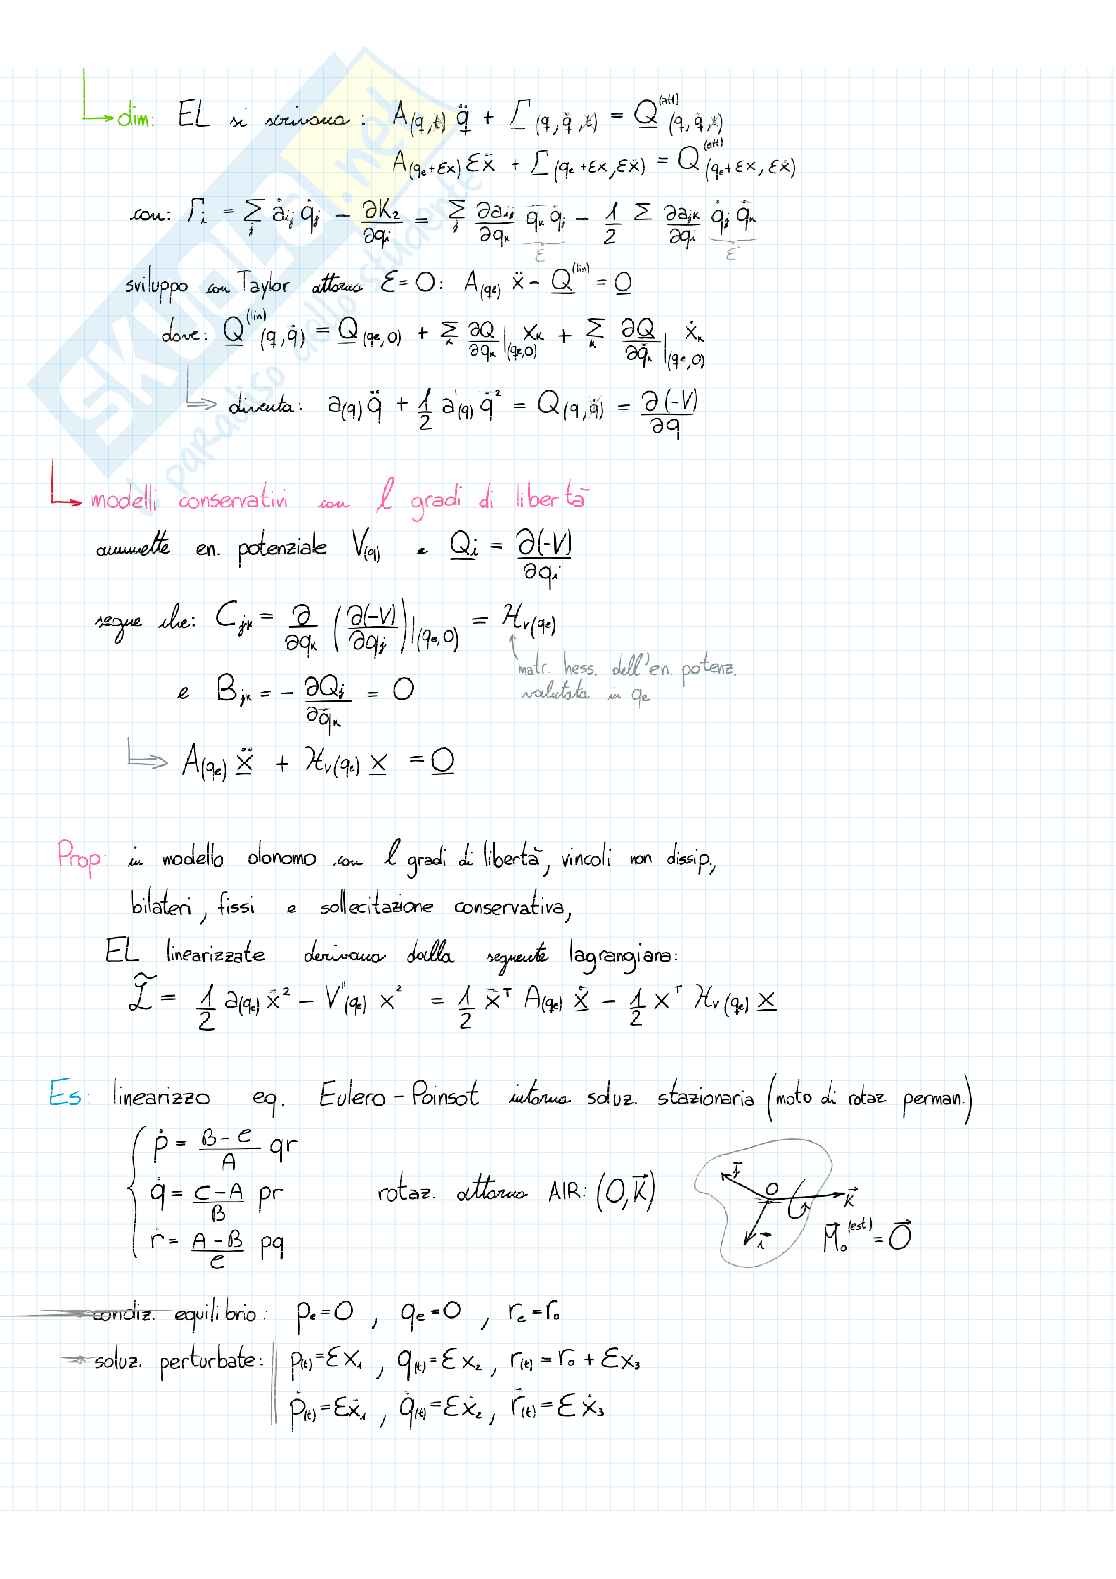 dim: EL si scrivono: A(q,t) q̈ + Γ(q,q̇,t) = Q^(att)(q,q̇,t)
A(qe+εx) εẍ + Γ(qe+εx,εẋ) = Q^(att)(qe+εx,εẋ)
con: Γi = Σj ȧij q̇j − ∂K2/∂qi = Σj ∂aij/∂qk q̇k q̇j − 1/2 Σ ∂ajk/∂qi q̇j q̇k
ε ε
sviluppo con Taylor attorno ε=0: A(qe) ẍ − Q^(lin) = 0
dove: Q^(lin)(q,q̇) = Q(qe,0) + Σk ∂Q/∂qk|(qe,0) xk + Σk ∂Q/∂q̇k|(qe,0) ẋk
diventa: a(q) q̈ + 1/2 a'(q) q̇² = Q(q,q̇) = ∂(-V)/∂q
modelli conservativi con l gradi di libertà
ammette en. potenziale V(q) e Qi = ∂(-V)/∂qi
segue che: Cjk = ∂/∂qk (∂(-V)/∂qj)|(qe,0) = Hv(qe)
matr. hess. dell'en. potenz.
valutata in qe
e Bjk = − ∂Qj/∂q̇k = 0
A(qe) ẍ + Hv(qe) x = 0
Prop: in modello olonomo con l gradi di libertà, vincoli non dissip.,
bilateri, fissi e sollecitazione conservativa,
EL linearizzate derivano dalla seguente lagrangiana:
L̃ = 1/2 a(qe) ẋ² − V''(qe) x² = 1/2 ẋᵀ A(qe) ẋ − 1/2 xᵀ Hv(qe) x
Es: linearizzo eq. Eulero-Poinsot intorno soluz. stazionaria (moto di rotaz perman.)
ṗ = B-C/A qr
q̇ = C-A/B pr rotaz. attorno AIR: (O,K⃗)
ṙ = A-B/C pq
j⃗ O k⃗ i⃗ M⃗o^(est) = 0⃗
condiz. equilibrio: pe=0, qe=0, re=r0
soluz. perturbate: p(t)=εx1, q(t)=εx2, r(t)=r0+εx3
ṗ(t)=εẋ1, q̇(t)=εẋ2, ṙ(t)=εẋ3
SKUOLA.net
il paradiso dello studente